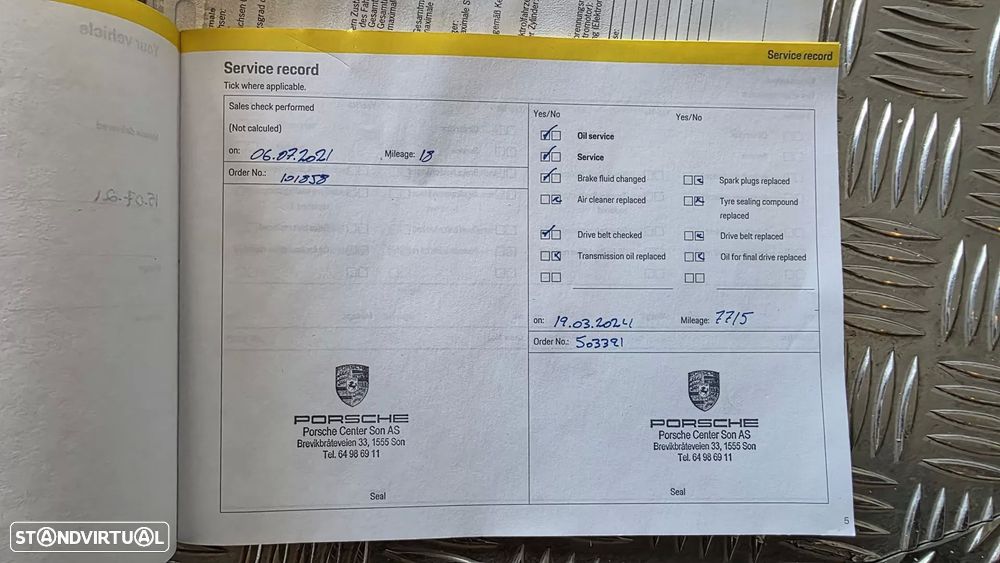 Service record
Service record
Tick where applicable.
Sales check performed
(Not calculed)
on: 06.07.2021 Mileage: 18
Order No.: 101858
Yes/No Yes/No
Oil service
Service
Brake fluid changed Spark plugs replaced
Air cleaner replaced Tyre sealing compound
replaced
Drive belt checked Drive belt replaced
Transmission oil replaced Oil for final drive replaced
on: 19.03.2024 Mileage: 7715
Order No.: 503391
PORSCHE
Porsche Center Son AS
Brevikbråteveien 33, 1555 Son
Tel. 64 98 69 11
Seal
PORSCHE
Porsche Center Son AS
Brevikbråteveien 33, 1555 Son
Tel. 64 98 69 11
Seal
5
Your vehicle
15.07-21
STANDVIRTUAL